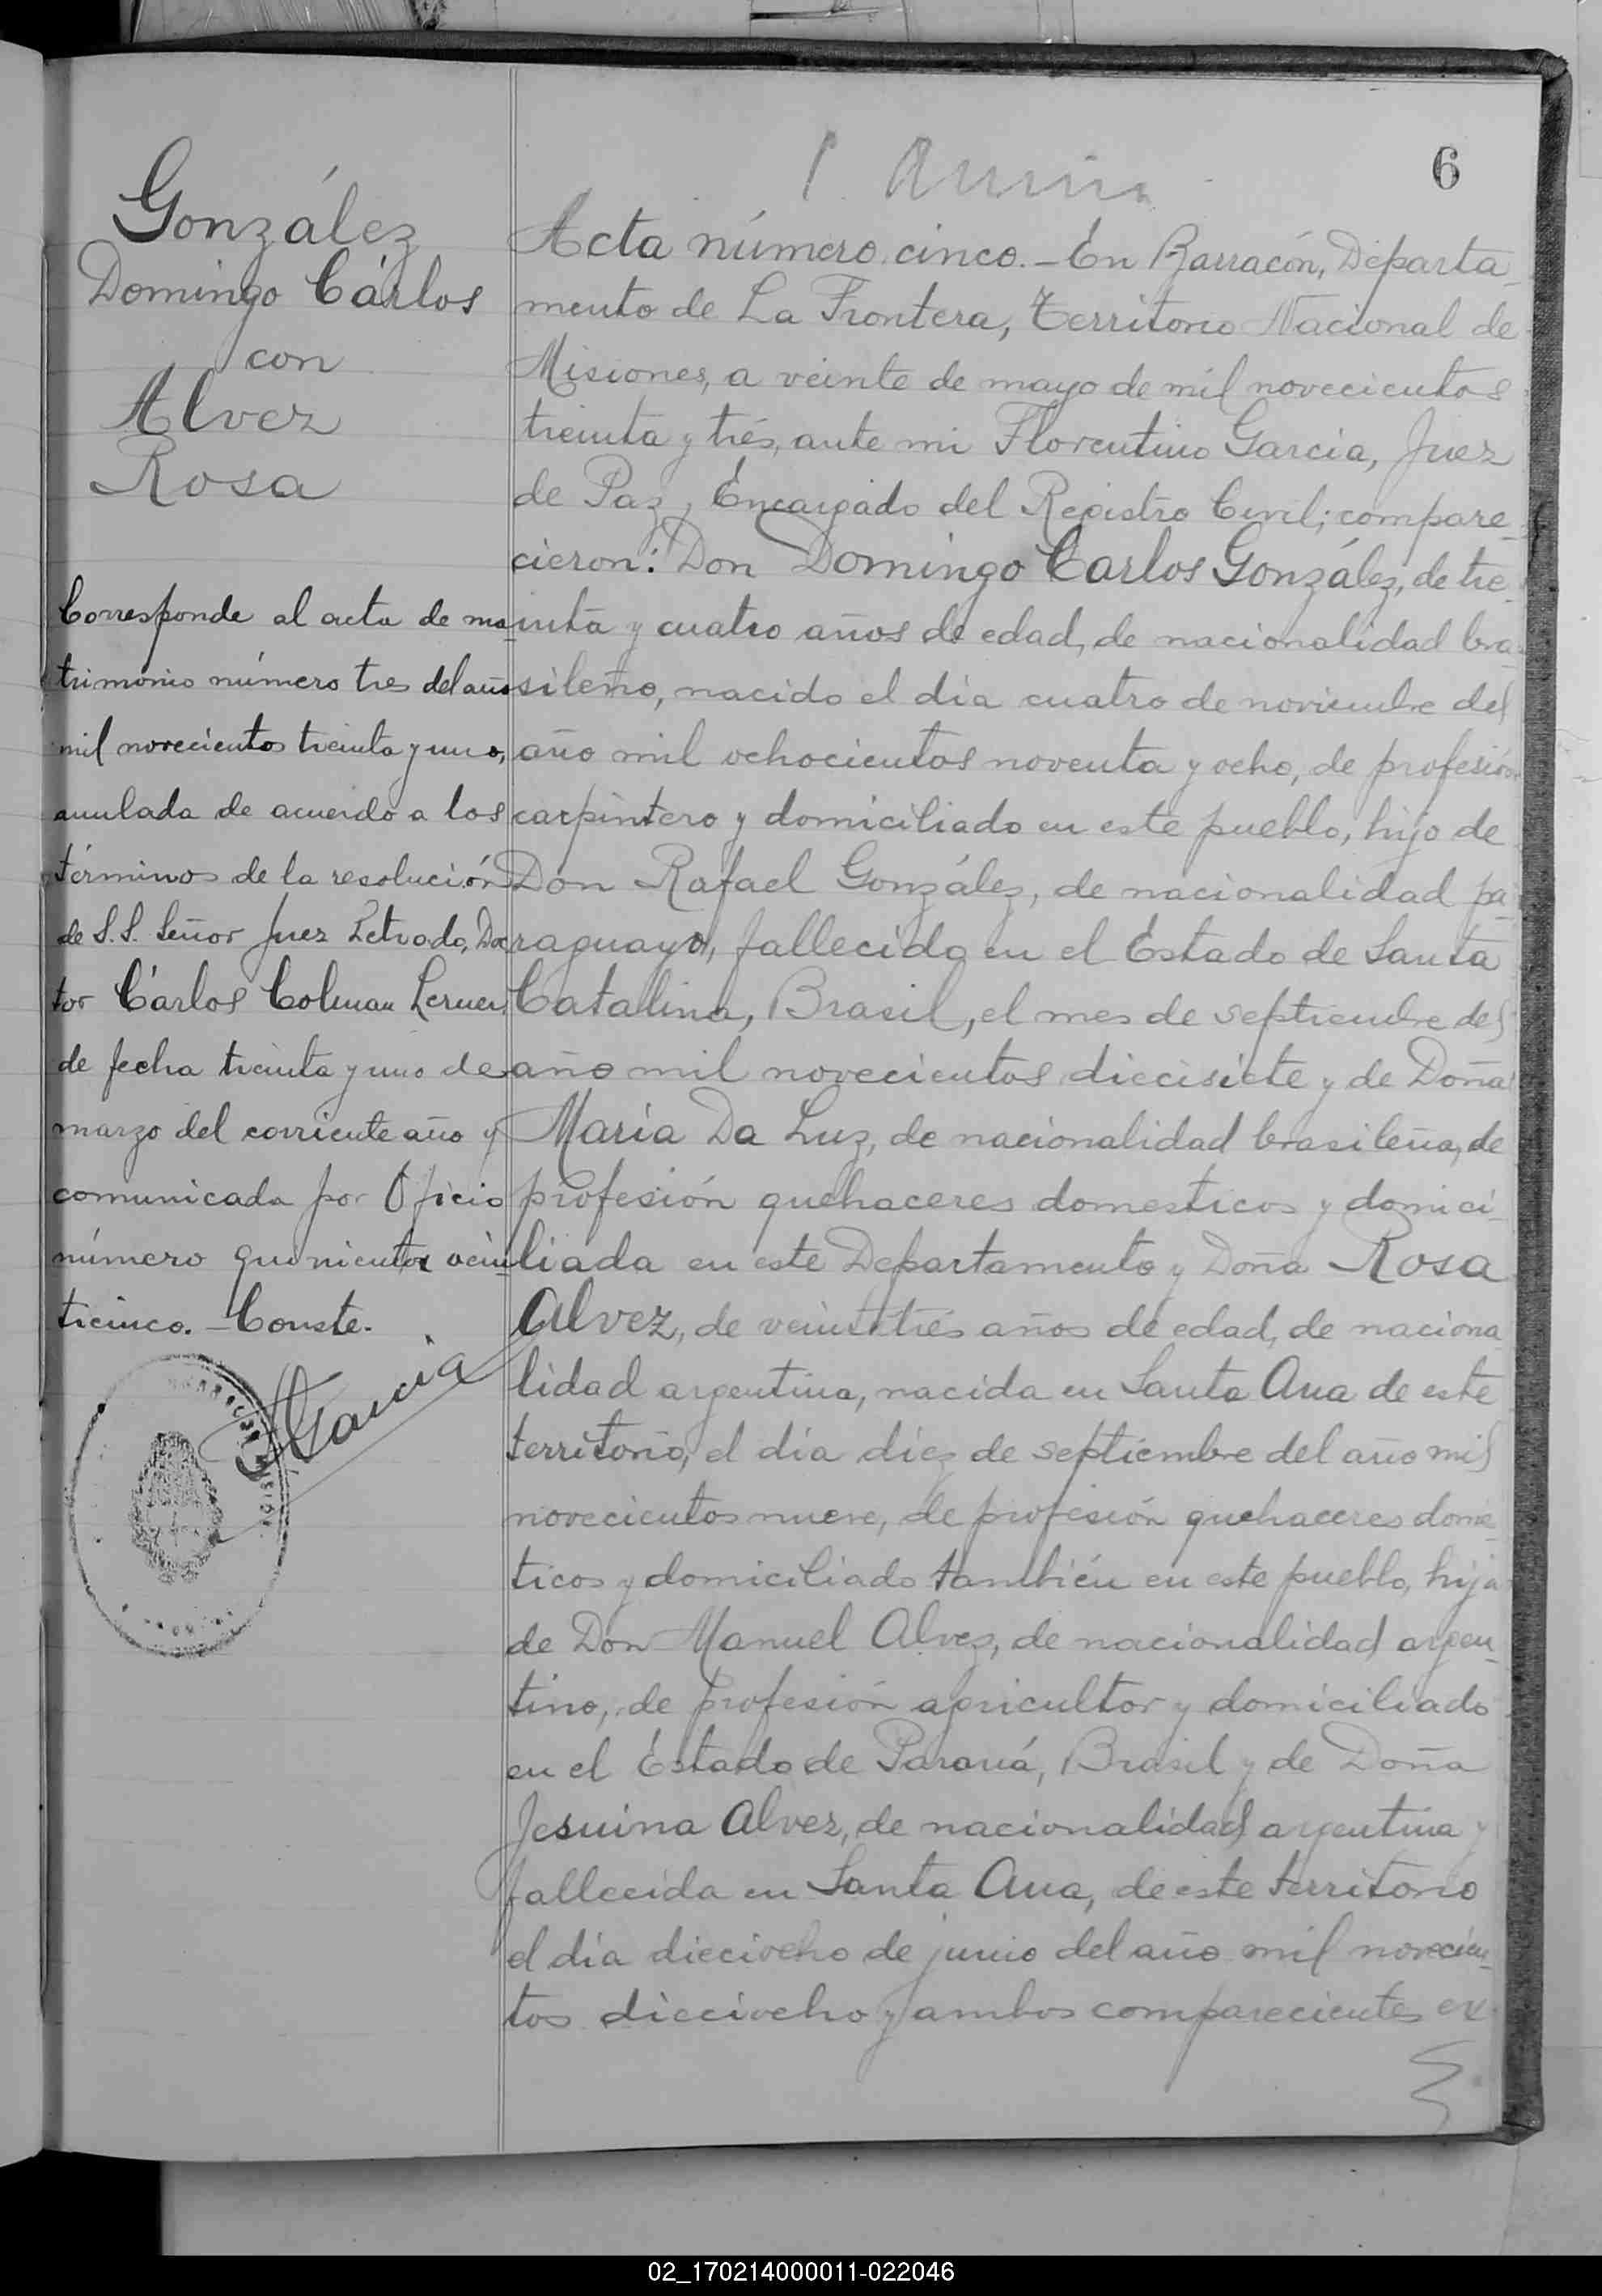 6
González
Domingo Cárlos
con
Alvez
Rosa
Corresponde al acta de ma-
trimonio número tres del año
mil novecientos treinta y uno,
anulada de acuerdo a los
términos de la resolución
de S.S. Señor Juez Letrado, Doc
tor Cárlos Colman Lerner,
de fecha treinta y uno de
marzo del corriente año y
comunicada por Oficio
número quinientos vein-
ticinco. - Conste.
García
Acta número cinco. - En Barracón, Departa-
mento de La Frontera, Territorio Nacional de
Misiones, a veinte de mayo de mil novecientos
treinta y trés, ante mi Florentino García, Juez
de Paz, Encargado del Registro Civil; compare-
cieron: Don Domingo Carlos González, de tre-
inta y cuatro años de edad, de nacionalidad bra-
sileño, nacido el dia cuatro de noviembre del
año mil ochocientos noventa y ocho, de profesión
carpintero y domiciliado en este pueblo, hijo de
Don Rafael González, de nacionalidad pa-
raguayo, fallecido en el Estado de Santa
Catalina, Brasil, el mes de septiembre del
año mil novecientos diecisiete y de Doña
María Da Luz, de nacionalidad brasileña, de
profesión quehaceres domesticos y domici-
liada en este Departamento y Doña Rosa
Alvez, de veintitrés años de edad, de naciona
lidad argentina, nacida en Santa Ana de este
territorio, el día diez de septiembre del año mil
novecientos nueve, de profesión quehaceres dome-
ticos y domiciliado también en este pueblo, hija
de Don Manuel Alvez, de nacionalidad argen-
tino, de profesión agricultor y domiciliado
en el Estado de Paraná, Brasil y de Doña
Jesuina Alvez, de nacionalidad argentina y
fallecida en Santa Ana, de este territorio
el día dieciocho de junio del año mil novecien-
tos dieciocho y ambos comparecientes ex-
02_170214000011-022046